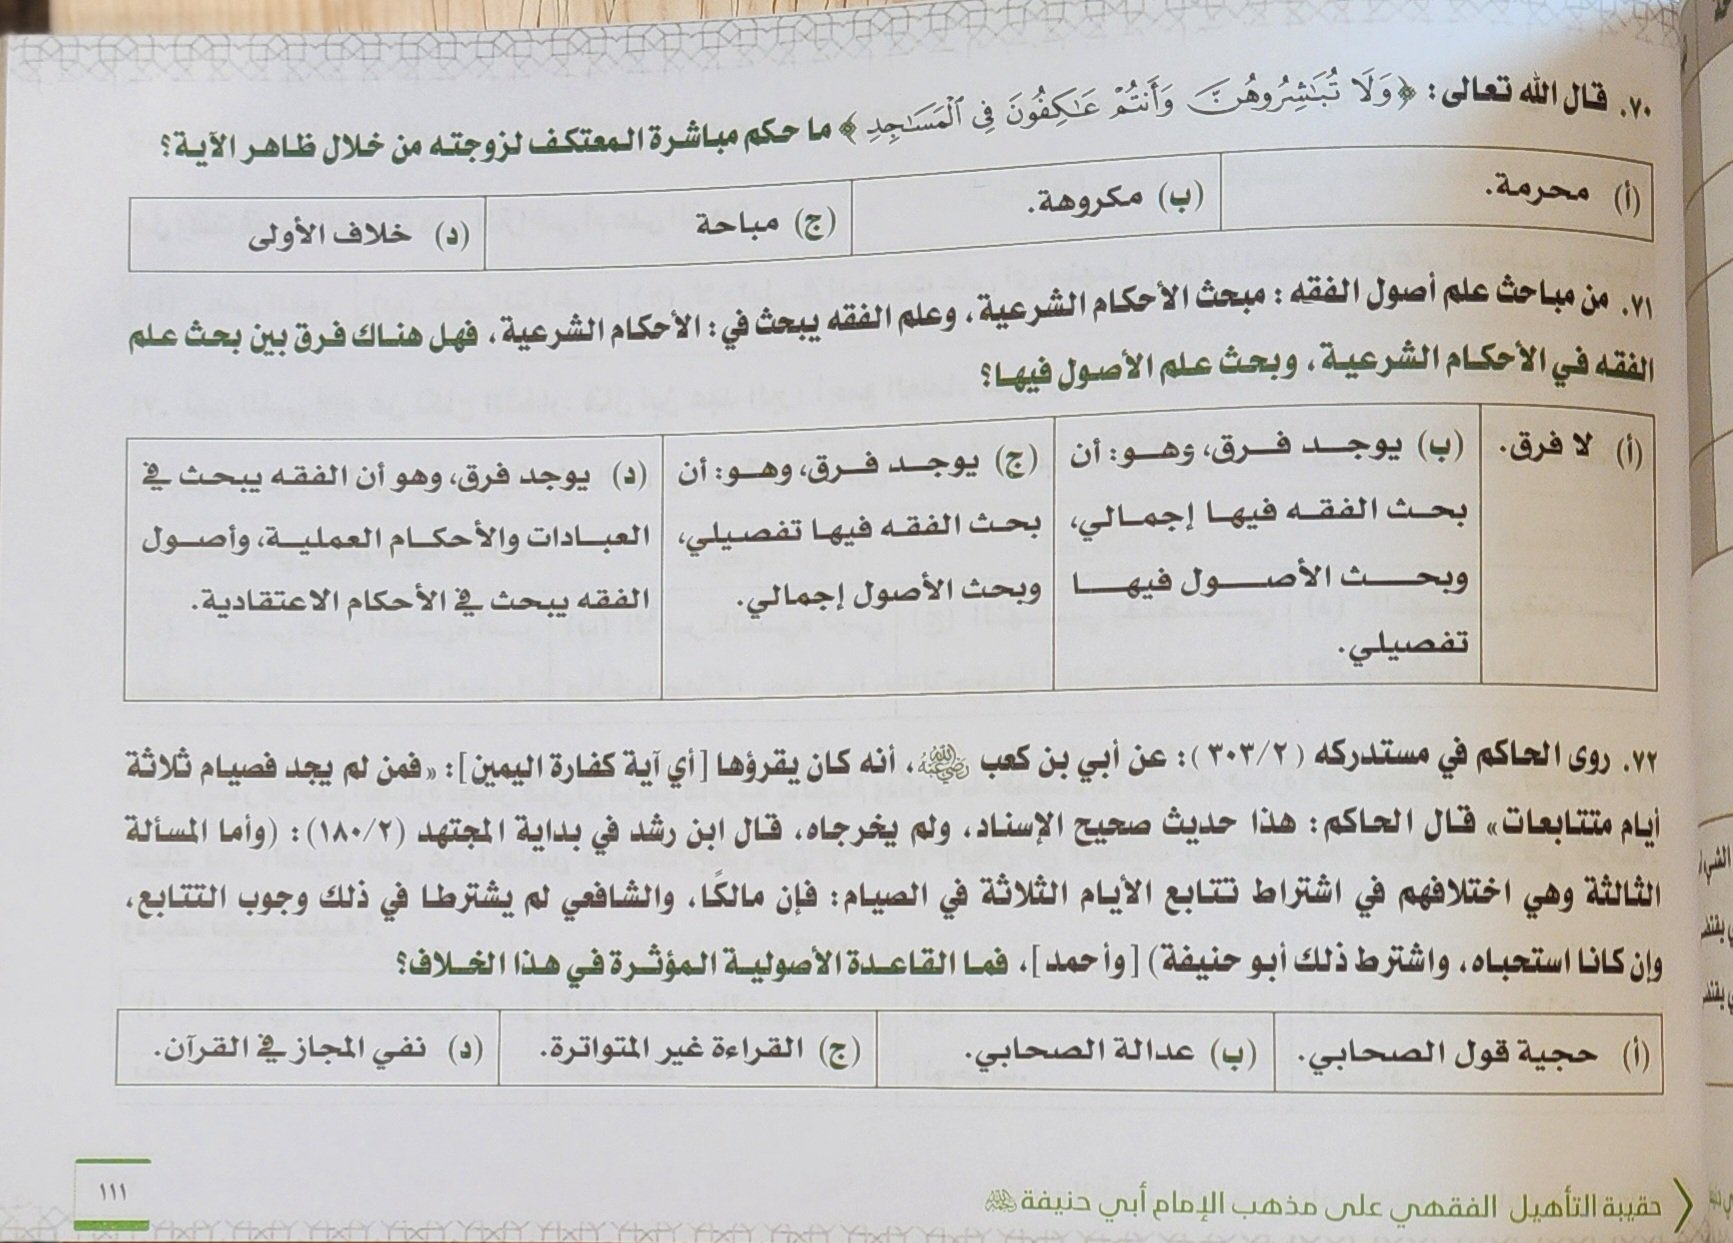 ٧٠. قال الله تعالى: ﴿وَلَا تُبَٰشِرُوهُنَّ وَأَنتُمْ عَٰكِفُونَ فِي ٱلْمَسَٰجِدِ﴾ ما حكم مباشرة المعتكف لزوجته من خلال ظاهر الآية؟
(أ) محرمة.
(ب) مكروهة.
(ج) مباحة
(د) خلاف الأولى
٧١. من مباحث علم أصول الفقه: مبحث الأحكام الشرعية، وعلم الفقه يبحث في: الأحكام الشرعية، فهل هناك فرق بين بحث علم
الفقه في الأحكام الشرعية، وبحث علم الأصول فيها؟
(أ) لا فرق.
(ب) يوجد فرق، وهو: أن
بحث الفقه فيها إجمالي،
وبحث الأصول فيها
تفصيلي.
(ج) يوجد فرق، وهو: أن
بحث الفقه فيها تفصيلي،
وبحث الأصول إجمالي.
(د) يوجد فرق، وهو أن الفقه يبحث في
العبادات والأحكام العملية، وأصول
الفقه يبحث في الأحكام الاعتقادية.
٧٢. روى الحاكم في مستدركه (٣٠٣/٢): عن أبي بن كعب رضي الله عنه، أنه كان يقرؤها [أي آية كفارة اليمين]: «فمن لم يجد فصيام ثلاثة
أيام متتابعات» قال الحاكم: هذا حديث صحيح الإسناد، ولم يخرجاه، قال ابن رشد في بداية المجتهد (١٨٠/٢): (وأما المسألة
الثالثة وهي اختلافهم في اشتراط تتابع الأيام الثلاثة في الصيام: فإن مالكًا، والشافعي لم يشترطا في ذلك وجوب التتابع،
وإن كانا استحباه، واشترط ذلك أبو حنيفة) [وأحمد]، فما القاعدة الأصولية المؤثرة في هذا الخلاف؟
(أ) حجية قول الصحابي.
(ب) عدالة الصحابي.
(ج) القراءة غير المتواترة.
(د) نفي المجاز في القرآن.
حقيبة التأهيل الفقهي على مذهب الإمام أبي حنيفة
١١١